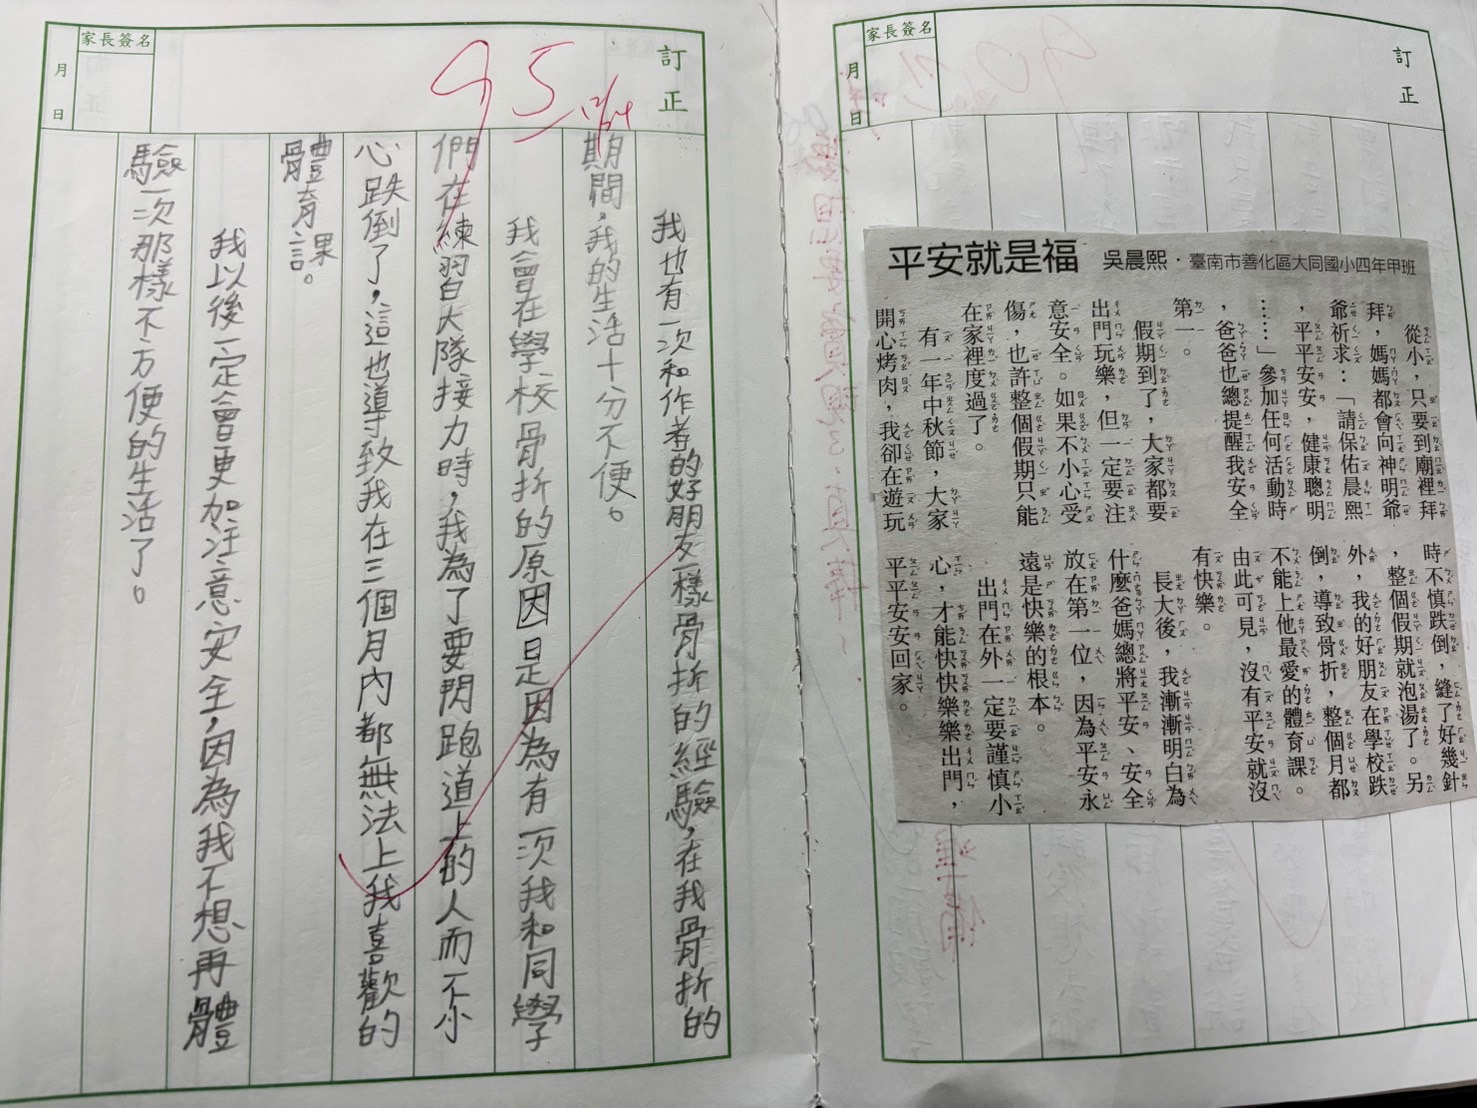 訂正
家長簽名
月
日
平安就是福
吳晨熙・臺南市善化區大同國小四年甲班
從小，只要到廟裡拜
拜，媽媽都會向神明爺
爺祈求：「請保佑晨熙
，平平安安，健康聰明
……」參加任何活動時
，爸爸也總提醒我安全
第一。
假期到了，大家都要
出門玩樂，但一定要注
意安全。如果不小心受
傷，也許整個假期只能
在家裡度過了。
有一年中秋節，大家
開心烤肉，我卻在遊玩
時不慎跌倒，縫了好幾針
，整個假期就泡湯了。另
外，我的好朋友在學校跌
倒，導致骨折，整個月都
不能上他最愛的體育課。
由此可見，沒有平安就沒
有快樂。
長大後，我漸漸明白為
什麼爸媽總將平安、安全
放在第一位，因為平安永
遠是快樂的根本。
出門在外一定要謹慎小
心，才能快快樂樂出門，
平平安安回家。
訂正
家長簽名
月
日
95
12/24
我也有一次和作者的好朋友一樣骨折的經驗，在我骨折的
期間，我的生活十分不便。
我會在學校骨折的原因是因為有一次我和同學
們在練習大隊接力時，我為了要閃跑道上的人而不小
心跌倒了，這也導致我在三個月內都無法上我喜歡的
體育課。
我以後一定會更加注意安全，因為我不想再體
驗一次那樣不方便的生活了。